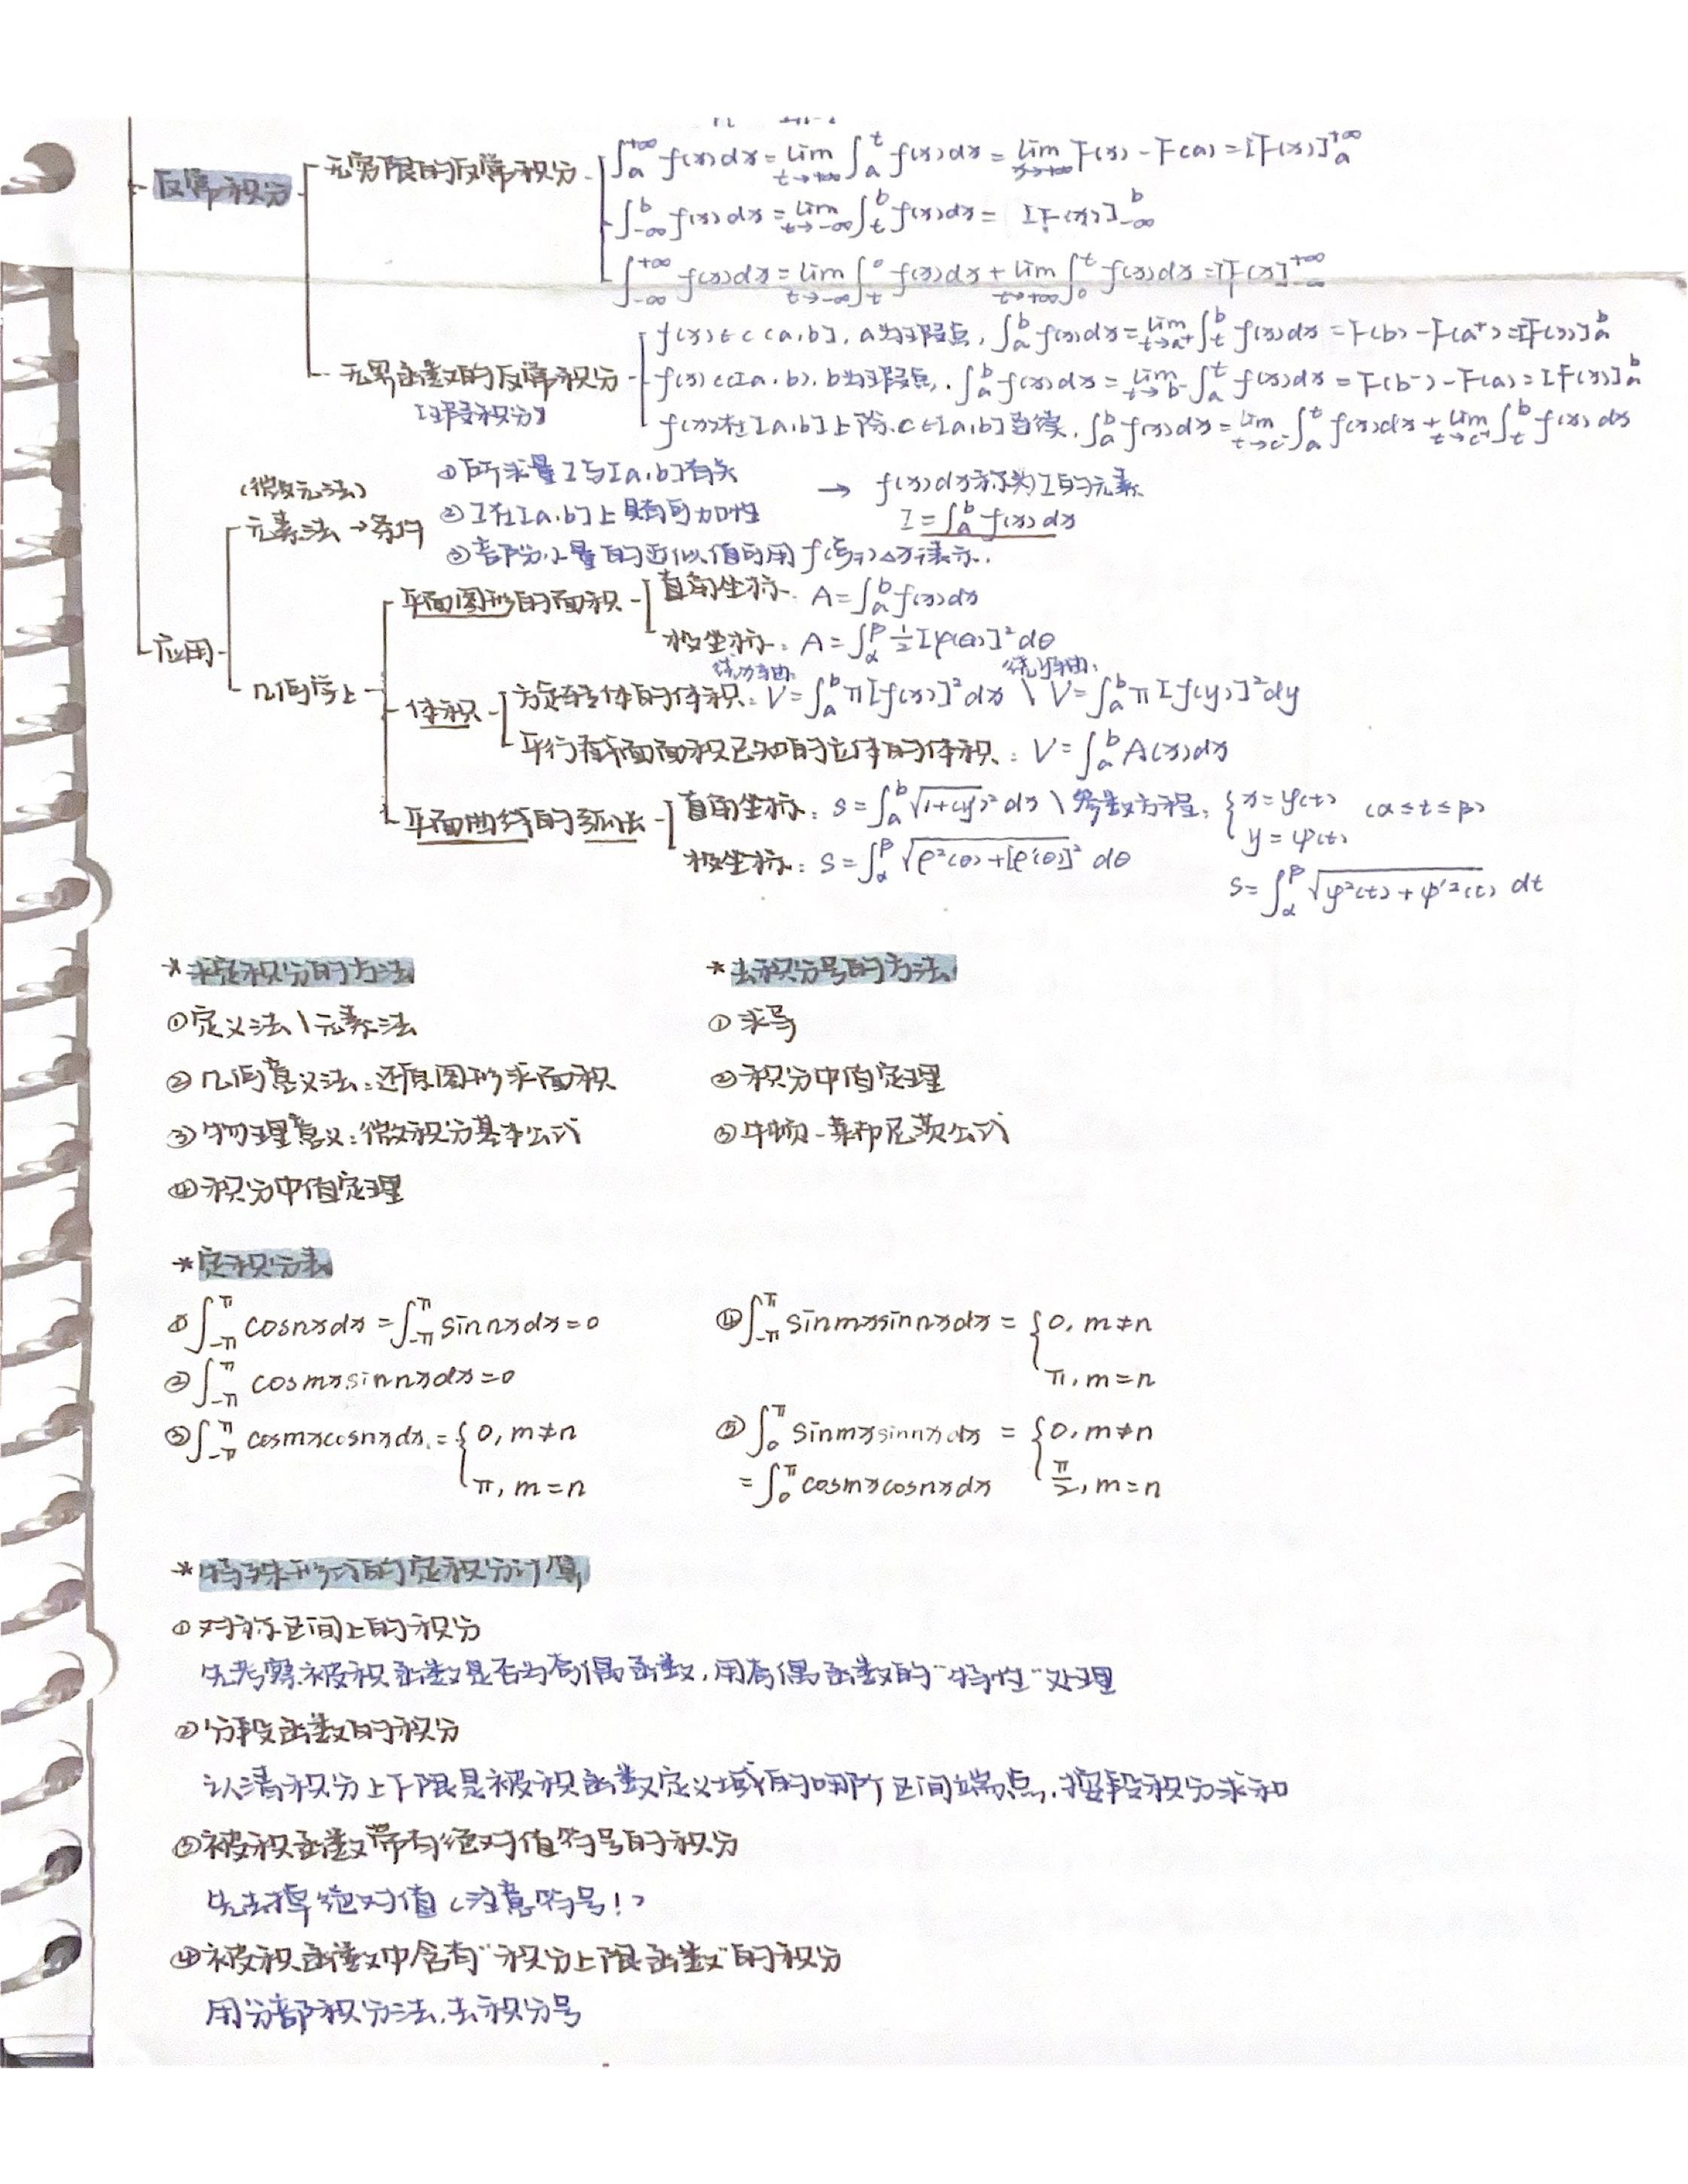 反常积分
无穷限的反常积分
∫_a^{+∞} f(x)dx = lim_{t→+∞} ∫_a^t f(x)dx = lim_{x→+∞} F(x) - F(a) = [F(x)]_a^{+∞}
∫_{-∞}^b f(x)dx = lim_{t→-∞} ∫_t^b f(x)dx = [F(x)]_{-∞}^b
∫_{-∞}^{+∞} f(x)dx = lim_{t→-∞} ∫_t^0 f(x)dx + lim_{t→+∞} ∫_0^t f(x)dx = [F(x)]_{-∞}^{+∞}
无界函数的反常积分
[瑕积分]
f(x)∈C(a,b], a为瑕点, ∫_a^b f(x)dx = lim_{t→a⁺} ∫_t^b f(x)dx = F(b) - F(a⁺) = [F(x)]_a^b
f(x)∈C[a,b), b为瑕点, ∫_a^b f(x)dx = lim_{t→b⁻} ∫_a^t f(x)dx = F(b⁻) - F(a) = [F(x)]_a^b
f(x)在[a,b]上除c∈[a,b]连续, ∫_a^b f(x)dx = lim_{t→c⁻} ∫_a^t f(x)dx + lim_{t→c⁺} ∫_t^b f(x)dx
应用
(微元法)
元素法→条件
①所求量I与[a,b]有关
②I在[a,b]上具有可加性
③部分量的近似值可用f(ξi)△xi表示.
→ f(x)dx称为I的元素
I=∫_a^b f(x)dx
几何学上
平面图形的面积
直角坐标: A=∫_a^b f(x)dx
极坐标: A=∫_α^β 1/2[φ(θ)]²dθ
体积
绕x轴: 绕y轴:
旋转体的体积: V=∫_a^b π[f(x)]²dx \ V=∫_a^b π[f(y)]²dy
平行截面面积已知的立体的体积: V=∫_a^b A(x)dx
平面曲线的弧长
直角坐标: s=∫_a^b √(1+(y')²) dx \ 参数方程: {x=φ(t) y=ψ(t) (α≤t≤β)
极坐标: s=∫_α^β √(ρ²(θ)+[ρ'(θ)]²) dθ
s=∫_α^β √(φ²(t)+ψ'²(t)) dt
*求定积分的方法
①定义法\元素法
②几何意义法:还原图形求面积
③物理意义:微积分基本公式
④积分中值定理
*去积分号的方法
①求导
②积分中值定理
③牛顿-莱布尼茨公式
*定积分表
①∫_{-π}^π cosnxdx=∫_{-π}^π sinnxdx=0
②∫_{-π}^π cosmxsinnxdx=0
③∫_{-π}^π cosmxcosnxdx={0, m≠n
π, m=n
④∫_{-π}^π sinmxsinnxdx={0, m≠n
π, m=n
⑤∫_0^π sinmxsinnxdx={0, m≠n
=∫_0^π cosmxcosnxdx π/2, m=n
*特殊形式的定积分计算
①对称区间上的积分
先考察被积函数是否为奇偶函数,用奇偶函数的"特性"处理
②分段函数的积分
认清积分上下限是被积函数定义域的哪个区间端点,按段积分求和
③被积函数带有绝对值符号的积分
先去掉绝对值(注意符号!)
④被积函数中含有"积分上限函数"的积分
用分部积分法,去积分号